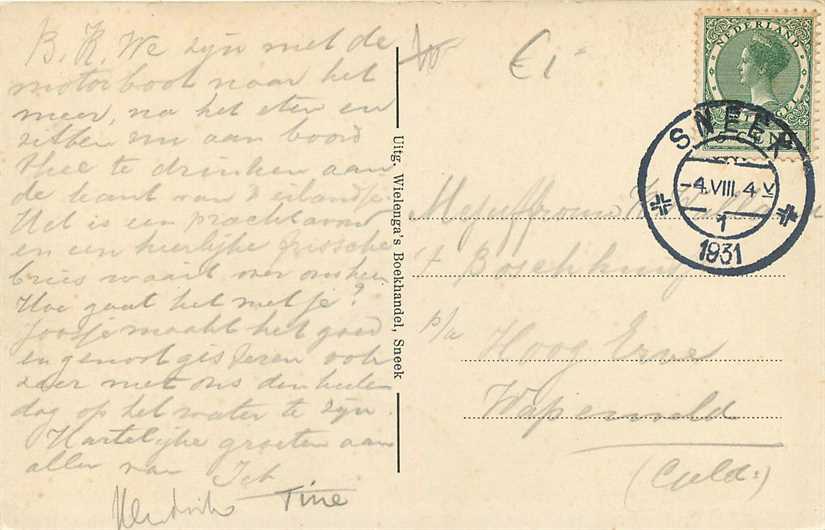 B. K. We zijn met de
motorboot naar het
meer, na het eten en
zitten nu aan boord
thee te drinken aan
de kant van 't eilandje.
Het is een prachtavond
en een heerlijke frissche
bries waait over ons heen.
Hoe gaat het met je?
Joosje maakt het goed
en genoot gisteren ook
zeer met ons den heelen
dag op het water te zijn.
Hartelijke groeten aan
allen van
Tine
Uitg. Wielenga's Boekhandel, Sneek
NEDERLAND
SNEEK
-4.VIII. 4 V
1
1931
Mejuffrouw
't Boschhuis
p/a Hoog Erve
Wapenveld
(Geld:)